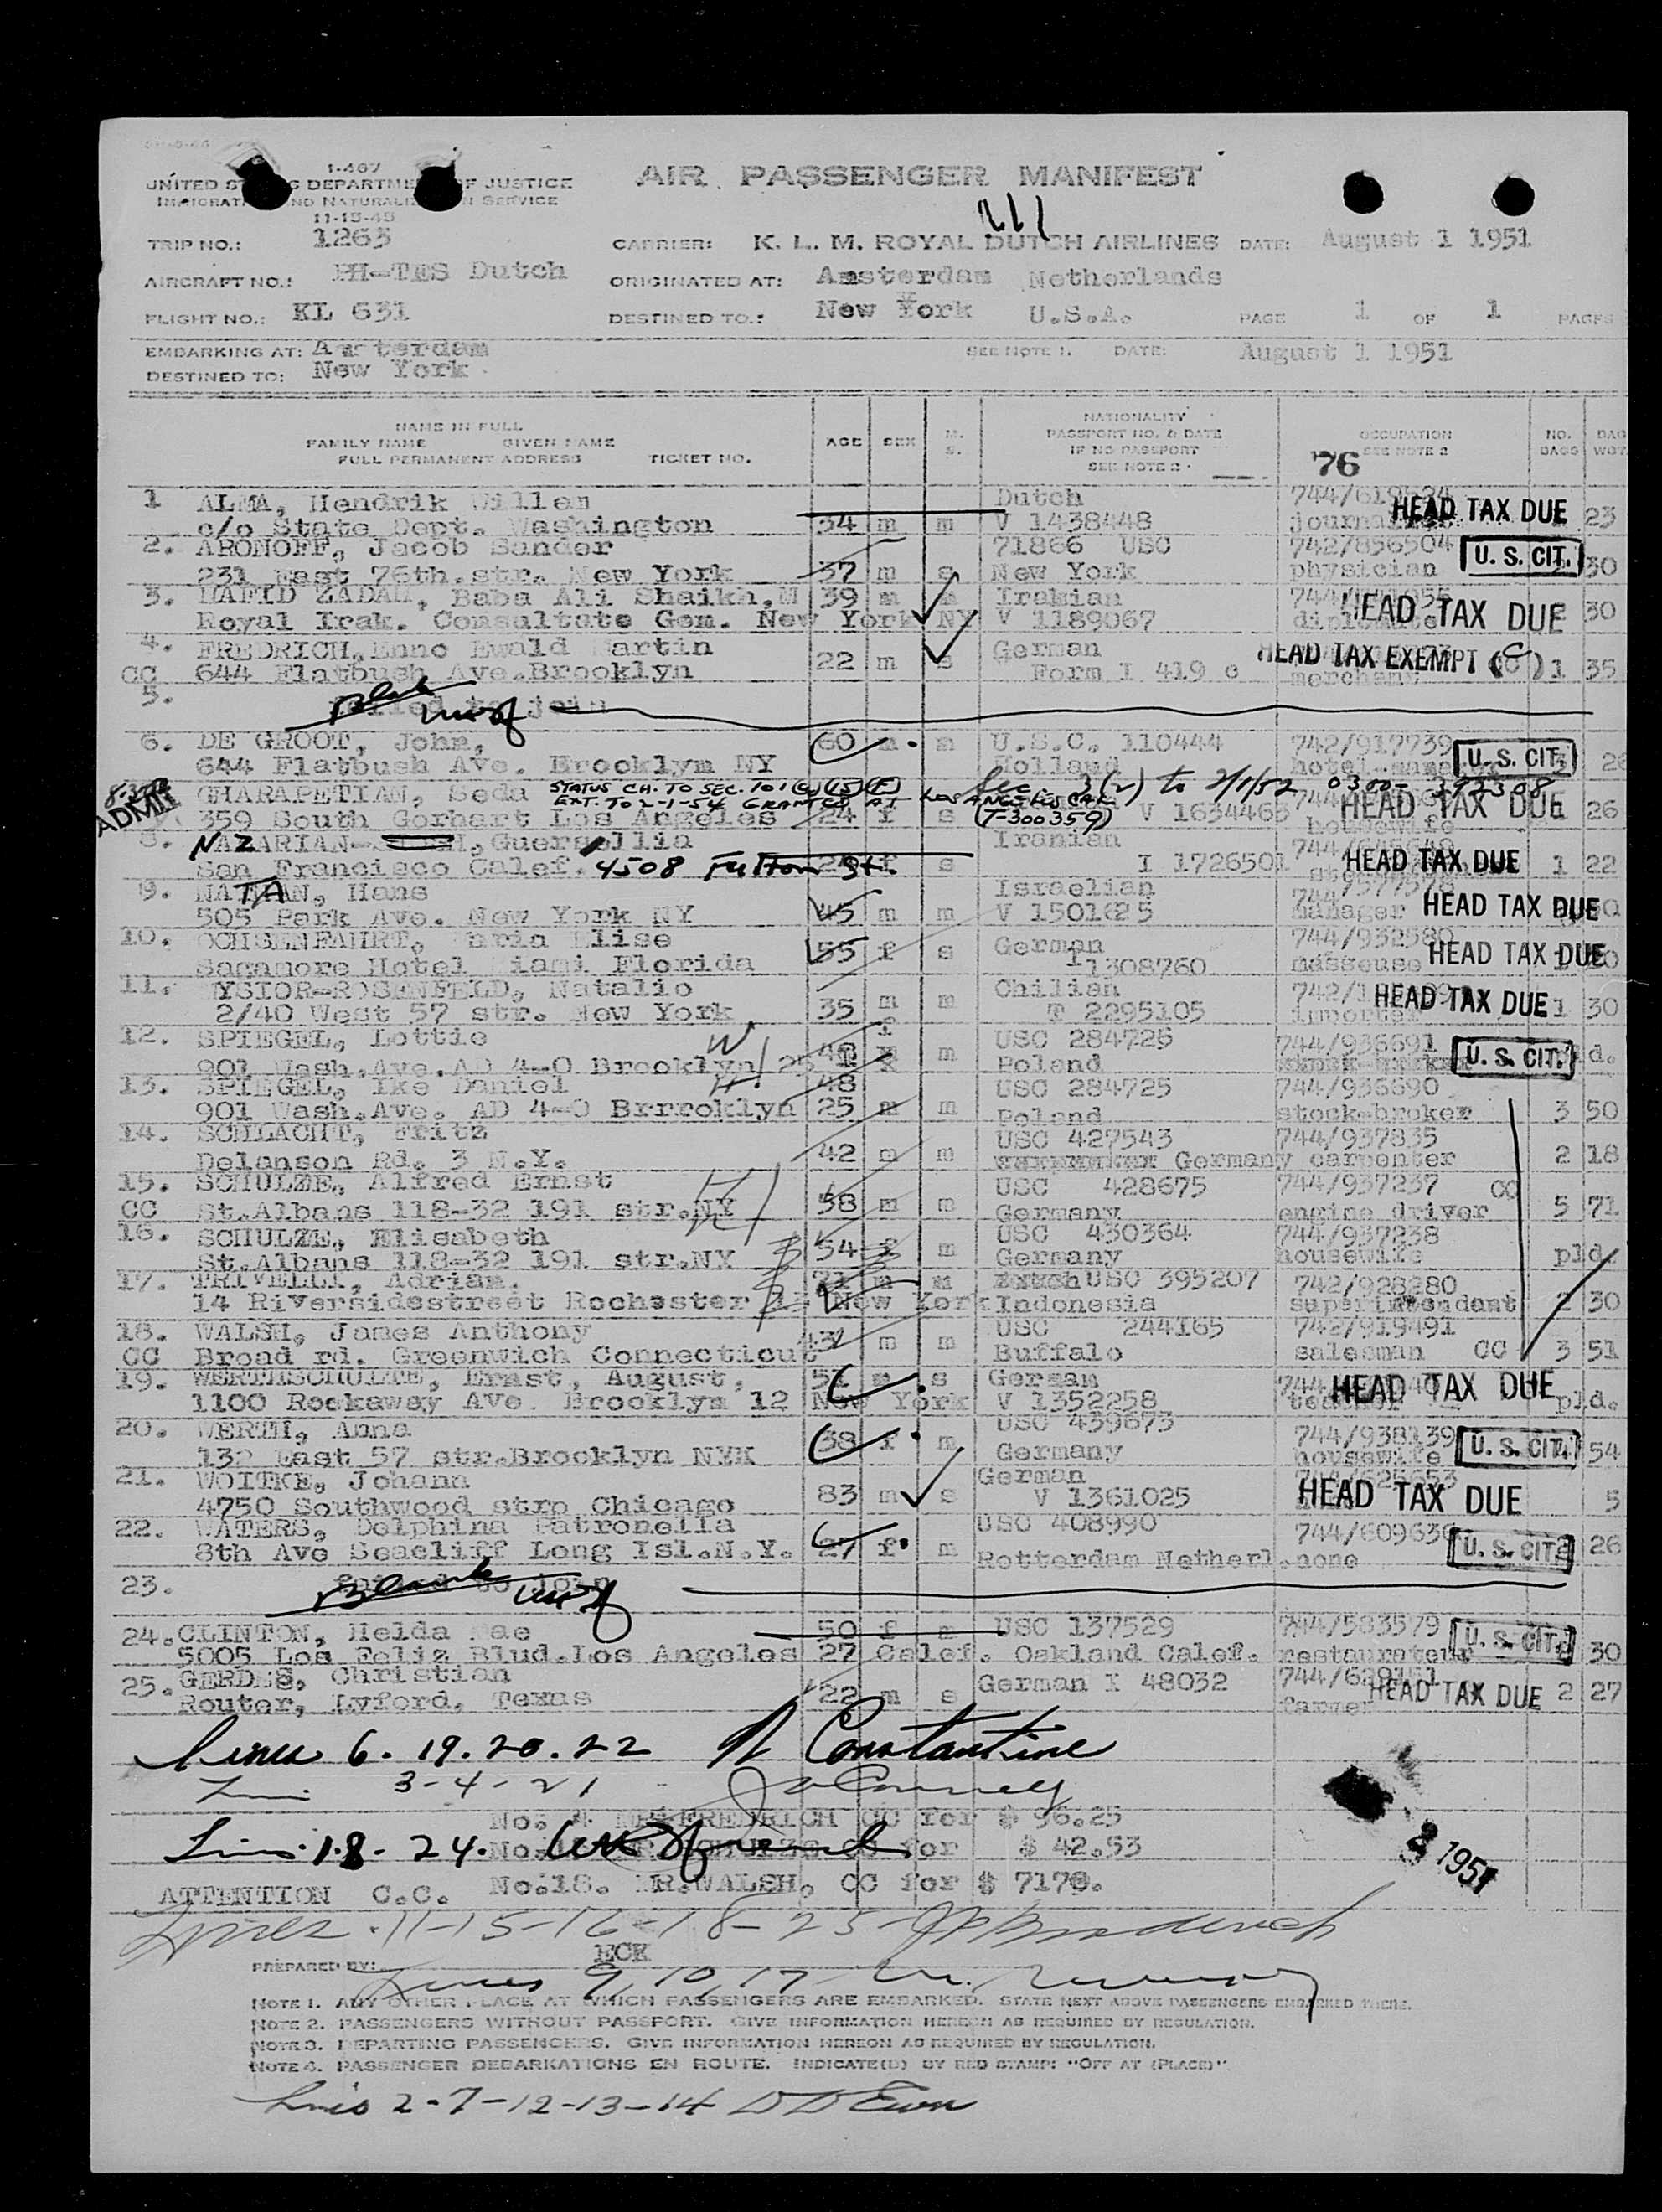 1-467
UNITED DEPARTME OF JUSTICE
AND NATURALIZ N SERVICE
11-15-45
AIR PASSENGER MANIFEST
TRIP NO.: 1265
CARRIER: K. L. M. ROYAL DUTCH AIRLINES DATE: August 1 1951
AIRCRAFT NO.: PH-TES Dutch
ORIGINATED AT: Amsterdam Netherlands
FLIGHT NO.: KL 631
DESTINED TO.: New York U.S.A. PAGE 1 OF 1 PAGES
EMBARKING AT: Amsterdam
SEE NOTE 1. DATE: August 1 1951
DESTINED TO: New York
NAME IN FULL
FAMILY NAME GIVEN NAME
FULL PERMANENT ADDRESS TICKET NO.
AGE SEX M. S.
NATIONALITY
PASSPORT NO. & DATE
IF NO PASSPORT
SEE NOTE 2
OCCUPATION
SEE NOTE 2
NO. BAGS
76
1 ALMA, Hendrik Willem Dutch
c/o State Dept. Washington 34 m m V 1438448 HEAD TAX DUE 23
2. ARONOFF, Jacob Sander 71866 USC 742/856504
231 East 76th.str. New York 37 m s New York physician U. S. CIT. 30
3. HAFID ZADAH, Baba Ali Shaikh, M 39 m
Royal Irak. Consultate Gen. New York NY V 1189067 HEAD TAX DUE 30
4. FREDRICH, Enno Ewald Martin German
CC 644 Flatbush Ave.Brooklyn 22 m s Form I 419 merchant HEAD TAX EXEMPT (C) 1 35
5.
6. DE GROOT, John, 60 m m U.S.C. 110444 742/917739
644 Flatbush Ave. Brooklyn NY Holland U. S. CIT.
ADMIT
GHARAPETIAN, Seda STATUS CH. TO SEC. 101(a)(15)(F) Sec 3(2) to 2/1/52 0300-392308
EXT. TO 2-1-54 GRANTED AT LOS ANGELES CAL
359 South Gorhart Los Angeles 24 f s (T-300359) V 1634463 housewife HEAD TAX DUE 26
8. NAZARIAN, Iranian
San Francisco Calef. 4508 Fulton St. s I 1726501 HEAD TAX DUE 1 22
9. NATAN, Hans Israelian
505 Park Ave. New York NY 45 m m V 1501625 manager HEAD TAX DUE
10. OCHSENFAHRT, Maria Elise German 744/932580
Sagamore Hotel Miami Florida 55 f s I 1308760 masseuse HEAD TAX DUE
11. YSIOR-ROSENFELD, Natalio Chilien
2/40 West 57 str. New York 35 m m T 2295105 HEAD TAX DUE 1 30
12. SPIEGEL, Lottie USC 284725 744/936691
901 Wash.Ave.AD 4-0 Brooklyn 25 m Poland U. S. CIT.
13. SPIEGEL, Ike Daniel 48 USC 284725 744/936690
901 Wash.Ave. AD 4-0 Brrroklyn 25 m m Poland stock-broker 3 50
14. SCHLACHT, Fritz USC 427543 744/937835
Delanson Rd. 3 N.Y. 42 m m Germany carpenter 2 18
15. SCHULZE, Alfred Ernst USC 428675 744/937237 CC
CC St.Albans 118-32 191 str.NY 58 m m Germany engine driver 5 71
16. SCHULZE, Elisabeth USC 430364 744/937238
St.Albans 118-32 191 str.NY 54 f m Germany housewife pld.
17. TRIVELLI, Adrian. 71 m m USC 395207 742/928280
14 Riversidestreet Rochester New York Indonesia superintendant 2 30
18. WALSH, James Anthony USC 244165 742/919491
CC Broad rd. Greenwich Connecticut 43 m m Buffalo salesman CC 3 51
19. WERTHSCHULTE, Ernst, August, m s German
1100 Rockaway AVe. Brooklyn 12 New York V 1352258 HEAD TAX DUE pld.
20. WERTH, Anna USC 439673 744/938139
132 East 57 str.Brooklyn NYK 38 f m Germany housewife U. S. CIT. 54
21. WOITKE, Johann German
4750 Southwood strp Chicago 83 m s V 1361025 HEAD TAX DUE 5
22. WATERS, Delphina Patronella USC 408990 744/609636
8th Ave Seacliff Long Isl.N.Y. 27 f m Rotterdam Netherl. none U. S. CIT. 26
23. Blank
24. CLINTON, Helda Mae 50 f m USC 137529 744/583579
5005 Los Feliz Blud.Los Angeles 27 Calef. Oakland Calef. restaurateur U. S. CIT. 30
25. GERDES, Christian German I 48032
Router, Lyford, Texas 22 m s farmer HEAD TAX DUE 2 27
Lines 6. 19. 20. 22 Constantine
3-4-21
No. 4 FREDRICH CC for $ 96.25
24. for $ 42.53
ATTENTION C.C. No.18. MR.WALSH, CC for $ 7170.
1951
Lines 11-15-16-18-25
ECK
PREPARED BY:
Lines 9, 10, 17
NOTE 1. ANY OTHER PLACE AT WHICH PASSENGERS ARE EMBARKED. STATE NEXT ABOVE PASSENGERS EMBARKED THERE.
NOTE 2. PASSENGERS WITHOUT PASSPORT. GIVE INFORMATION HEREON AS REQUIRED BY REGULATION.
NOTE 3. DEPARTING PASSENGERS. GIVE INFORMATION HEREON AS REQUIRED BY REGULATION.
NOTE 4. PASSENGER DEBARKATIONS EN ROUTE. INDICATE(D) BY RED STAMP: "OFF AT (PLACE)".
Lines 2-7-12-13-14